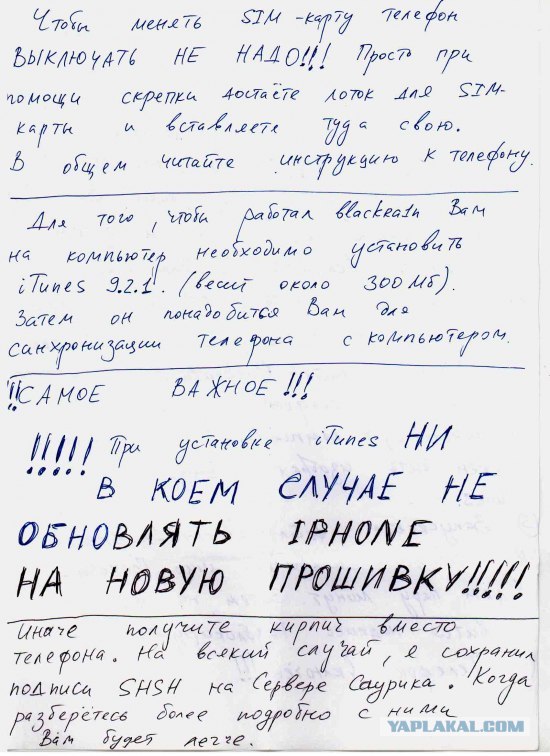 Чтобы менять SIM-карту телефон
ВЫКЛЮЧАТЬ НЕ НАДО!!! Просто при
помощи скрепки достаёте лоток для SIM-
карты и вставляете туда свою.
В общем читайте инструкцию к телефону.
Для того, чтобы работал blackra1n Вам
на компьютер необходимо установить
iTunes 9.2.1. (весит около 300 Мб).
Затем он понадобиться Вам для
синхронизации телефона с компьютером.
!!САМОЕ ВАЖНОЕ!!!
!!!!! При установке iTunes НИ
В КОЕМ СЛУЧАЕ НЕ
ОБНОВЛЯТЬ IPHONE
НА НОВУЮ ПРОШИВКУ!!!!!
Иначе получите кирпич вместо
телефона. На всякий случай, я сохранил
подписи SHSH на Сервере Саурика. Когда
разберётесь более подробно с ними
Вам будет легче.
YAPLAKAL.COM